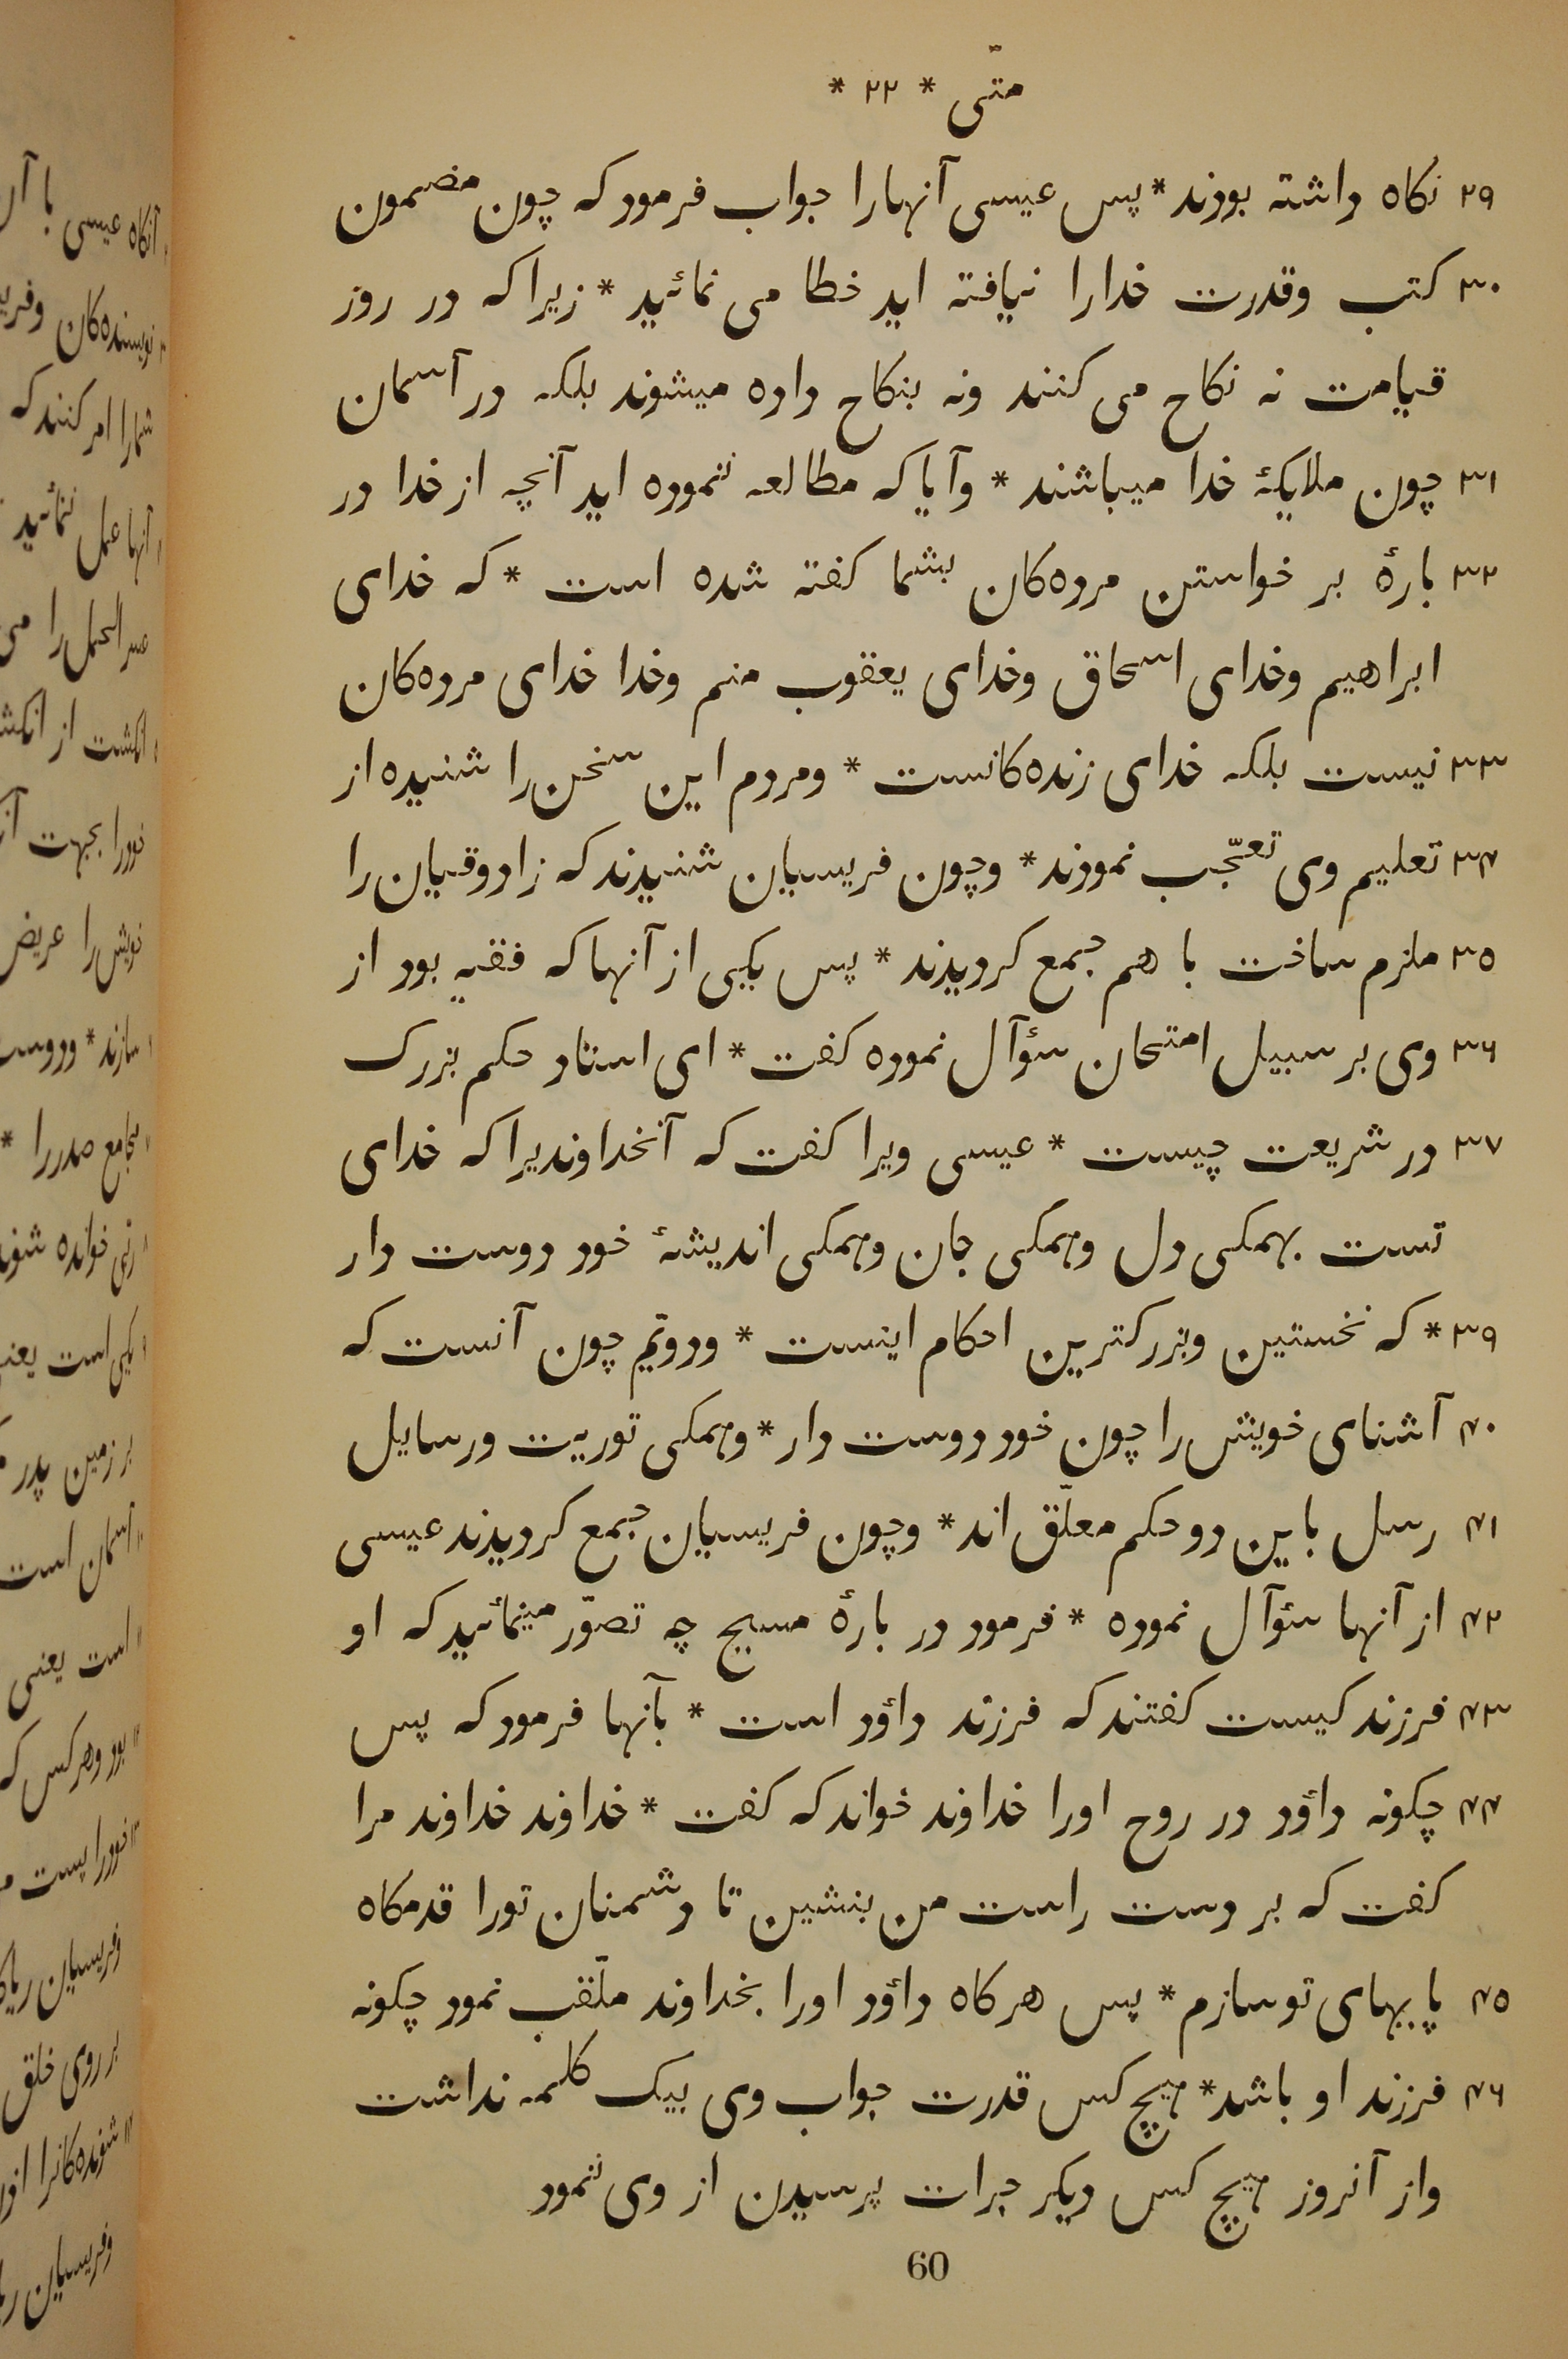 متّی * ۲۲ *
۲۹ نکاه داشته بودند * پس عیسی آنهارا جواب فرمود که چون مضمون
۳۰ کتب وقدرت خدارا نیافته اید خطا می نمائید * زیرا که در روز
قیامت نه نکاح می کنند ونه بنکاح داده میشوند بلکه در آسمان
۳۱ چون ملایکهٔ خدا میباشند * وآیا که مطالعه ننموده اید آنچه از خدا در
۳۲ بارهٔ بر خواستن مرده‌کان بشما کفته شده است * که خدای
ابراهیم وخدای اسحاق وخدای یعقوب منم وخدا خدای مرده‌کان
۳۳ نیست بلکه خدای زنده‌کانست * ومردم این سخن را شنیده از
۳۴ تعلیم وی تعجّب نمودند * وچون فریسیان شنیدند که زادوقیان را
۳۵ ملزم ساخت با هم جمع کردیدند * پس یکی از آنها که فقیه بود از
۳۶ وی بر سبیل امتحان سؤآل نموده کفت * ای استاد حکم بزرک
۳۷ در شریعت چیست * عیسی ویرا کفت که آنخداوندیرا که خدای
تست بهمکی دل وهمکی جان وهمکی اندیشهٔ خود دوست دار
۳۹ * که نخستین وبزرکترین احکام اینست * ودوّیم چون آنست که
۴۰ آشنای خویش را چون خود دوست دار * وهمکی توریت ورسایل
۴۱ رسل باین دو حکم معلّق اند * وچون فریسیان جمع کردیدند عیسی
۴۲ از آنها سؤآل نموده * فرمود در بارهٔ مسیح چه تصوّر مینمائید که او
۴۳ فرزند کیست کفتند که فرزند داؤد است * بآنها فرمود که پس
۴۴ چکونه داؤد در روح اورا خداوند خواند که کفت * خداوند خداوند مرا
کفت که بر دست راست من بنشین تا دشمنان تورا قدمکاه
۴۵ پایهای تو سازم * پس هرکاه داؤد اورا بخداوند ملّقب نمود چکونه
۴۶ فرزند او باشد * هیچ کس قدرت جواب وی بیک کلمه نداشت
واز آنروز هیچ کس دیکر جرات پرسیدن از وی ننمود
60
آنکاه عیسی با
نویسنده‌کان
شمارا امر کنند که
آنها عمل ننمائید
را می
انکشت از
خودرا بجهت
خویش را عریض
سازند *
مجامع صدررا *
خوانده
یکی است
بر زمین پدر
آسمان است
است یعنی
بود وهرکس که
خودرا پست
وفریسیان
بر روی خلق
وفریسیان